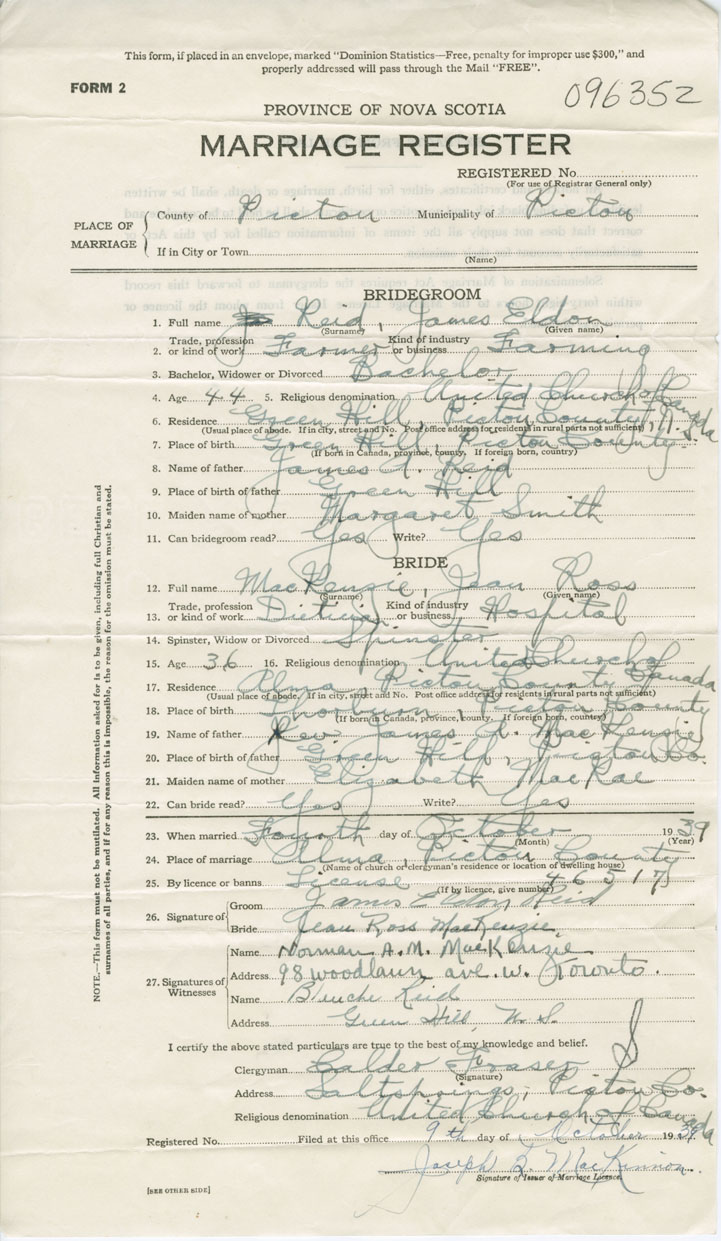 This form, if placed in an envelope, marked "Dominion Statistics—Free, penalty for improper use $300," and
properly addressed will pass through the Mail "FREE".
FORM 2
096352
PROVINCE OF NOVA SCOTIA
MARRIAGE REGISTER
REGISTERED No.
(For use of Registrar General only)
PLACE OF MARRIAGE
County of Pictou Municipality of Pictou
If in City or Town
(Name)
BRIDEGROOM
1. Full name Reid, James Eldon
(Surname) (Given name)
2. Trade, profession or kind of work Farmer Kind of industry or business Farming
3. Bachelor, Widower or Divorced Bachelor
4. Age 44 5. Religious denomination United Church of Canada
6. Residence Green Hill, Pictou County, N.S.
(Usual place of abode. If in city, street and No. Post office address for residents in rural parts not sufficient)
7. Place of birth Green Hill, Pictou County
(If born in Canada, province, county. If foreign born, country)
8. Name of father James A. Reid
9. Place of birth of father Green Hill
10. Maiden name of mother Margaret Smith
11. Can bridegroom read? Yes Write? Yes
BRIDE
12. Full name MacKenzie, Jean Ross
(Surname) (Given name)
13. Trade, profession or kind of work Dietician Kind of industry or business Hospital
14. Spinster, Widow or Divorced Spinster
15. Age 36 16. Religious denomination United Church of Canada
17. Residence Alma Pictou County
(Usual place of abode. If in city, street and No. Post office address for residents in rural parts not sufficient)
18. Place of birth Thorburn, Pictou County
(If born in Canada, province, county. If foreign born, country)
19. Name of father Rev James A. MacKenzie
20. Place of birth of father Green Hill, Pictou Co.
21. Maiden name of mother Elizabeth MacRae
22. Can bride read? Yes Write? Yes
23. When married Fourth day of October 1939
(Month) (Year)
24. Place of marriage Alma, Pictou County
(Name of church or clergyman's residence or location of dwelling house)
25. By licence or banns License 46517
(If by licence, give number)
26. Signature of
Groom James Eldon Reid
Bride Jean Ross MacKenzie.
27. Signatures of Witnesses
Name Norman A.M. MacKenzie
Address 98 Woodlawn ave. w. Toronto.
Name Blanche Reid
Address Green Hill, N.S.
I certify the above stated particulars are true to the best of my knowledge and belief.
Clergyman Calder Fraser
(Signature)
Address Saltsprings, Pictou Co.
Religious denomination United Church of Canada
Registered No. Filed at this office 9th day of October 1939.
Joseph MacKinnon.
Signature of Issuer of Marriage Licence.
[SEE OTHER SIDE]
NOTE.—This form must not be mutilated. All information asked for is to be given, including full Christian and
surnames of all parties, and if for any reason this is impossible, the reason for the omission must be stated.